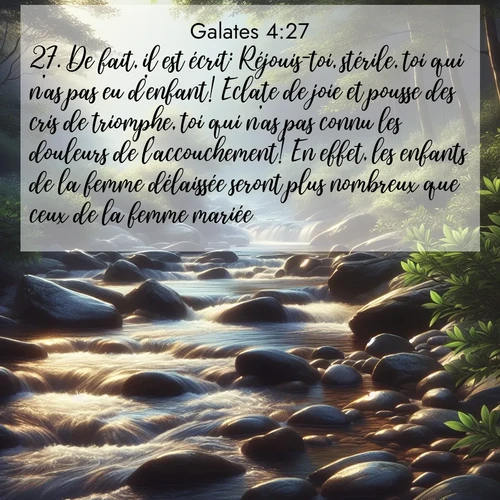 Galates 4:27
27. De fait, il est écrit: Réjouis-toi, stérile, toi qui
n'as pas eu d'enfant! Eclate de joie et pousse des
cris de triomphe, toi qui n'as pas connu les
douleurs de l'accouchement! En effet, les enfants
de la femme délaissée seront plus nombreux que
ceux de la femme mariée